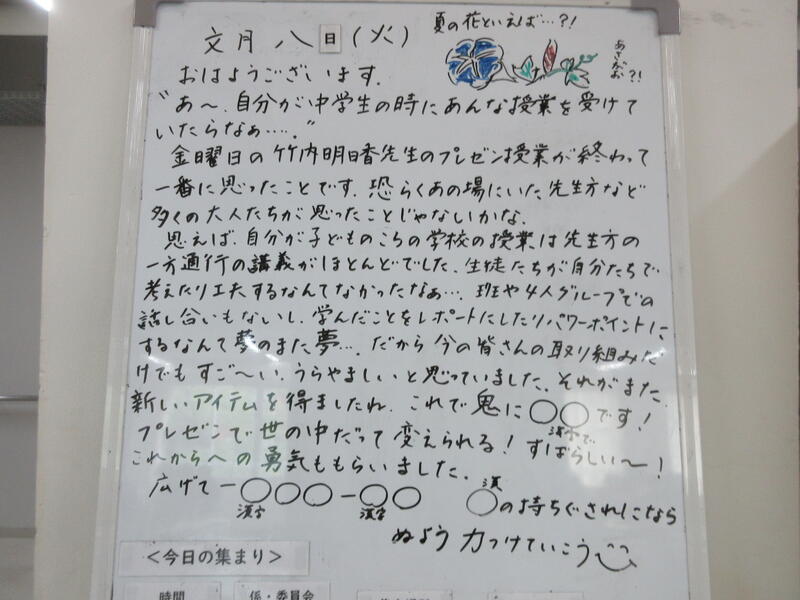 文月 八日(火)
夏の花といえば…?!
あさがお?!
おはようございます。
"あ〜、自分が中学生の時にあんな授業を受けて
いたらなぁ…。"
金曜日の竹内明日香先生のプレゼン授業が終わって
一番に思ったことです。恐らくあの場にいた先生方など
多くの大人たちが思ったことじゃないかな。
思えば、自分が子どものころの学校の授業は先生方の
一方通行の講義がほとんどでした。生徒たちが自分たちで
考えたり工夫するなんてなかったなぁ…。班や4人グループでの
話し合いもないし、学んだことをレポートにしたりパワーポイントに
するなんて夢のまた夢…。だから今の皆さんの取り組みだ
けでもすご〜い、うらやましいと思っていました。それがまた、
新しいアイテムを得ましたね。これで鬼に〇〇です!
漢字で
プレゼンで世の中だって変えられる!すばらしい〜!
これからへの勇気ももらいました。
広げて一〇〇〇一〇〇 〇の持ちぐされになら
漢字 漢字 漢
ぬよう力つけていこう
<今日の集まり>
時間 係・委員会